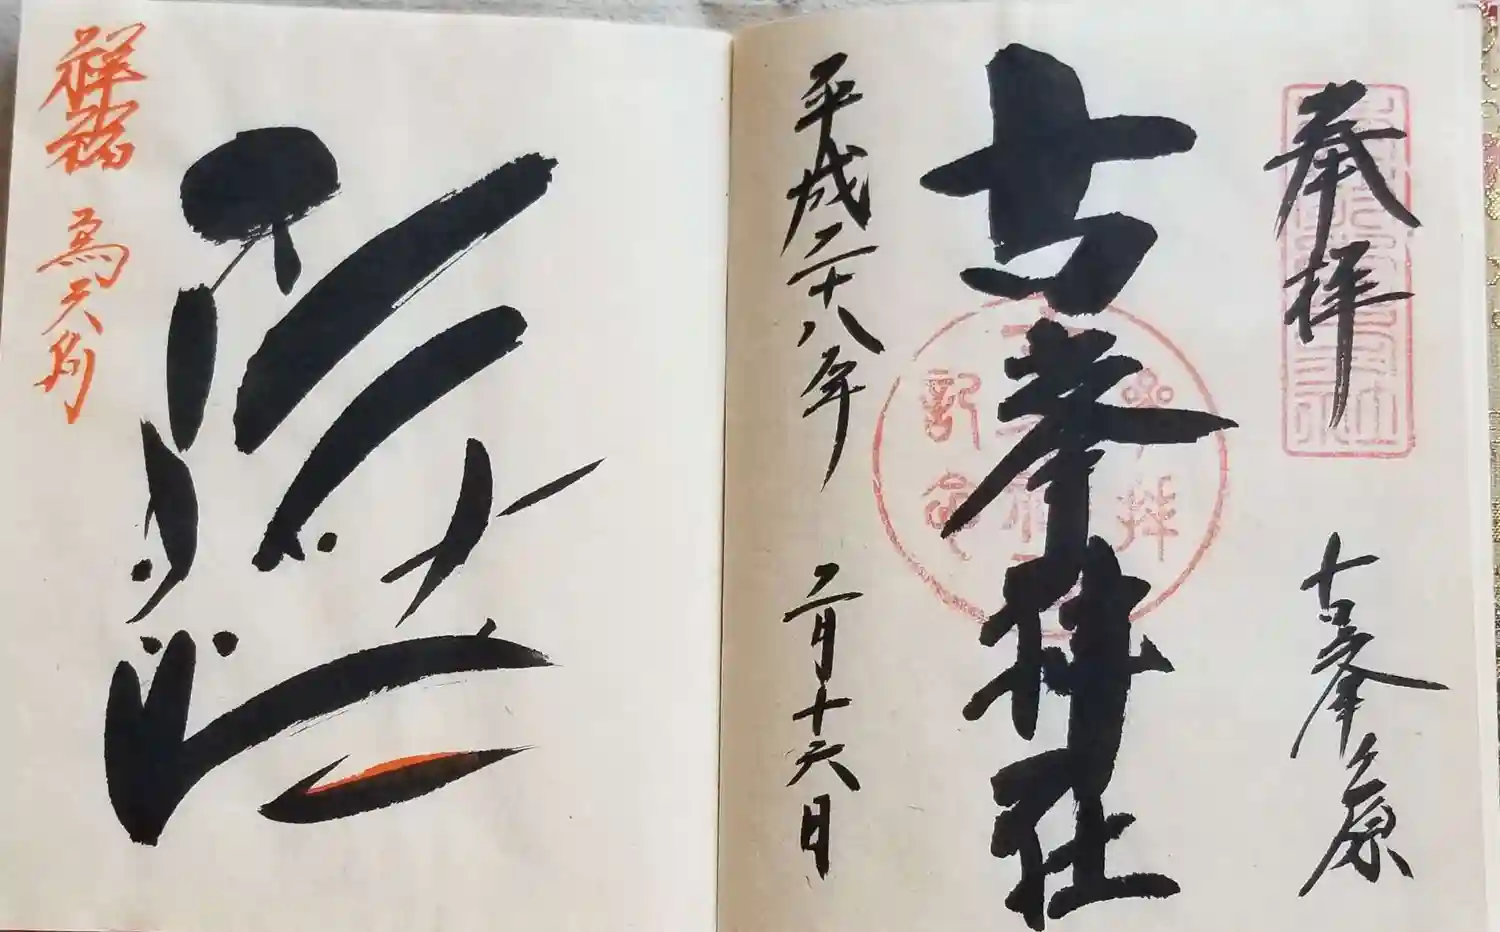 奉拝
古峯原
古峯神社
平成二十八年
二月十六日
祥福
為天狗